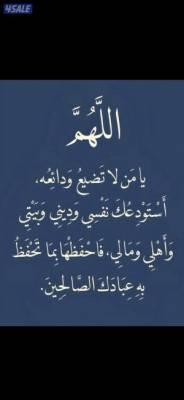 4SALE
اللَّهُمَّ
يا مَن لا تَضيعُ وَدائِعُه،
أَسْتَوْدِعُكَ نَفْسِي وَدِينِي وَبَيْتِي
وَأَهْلِي وَمَالِي، فَاحْفَظْهَا بِمَا تَحْفَظُ
بِهِ عِبَادَكَ الصَّالِحِينَ.